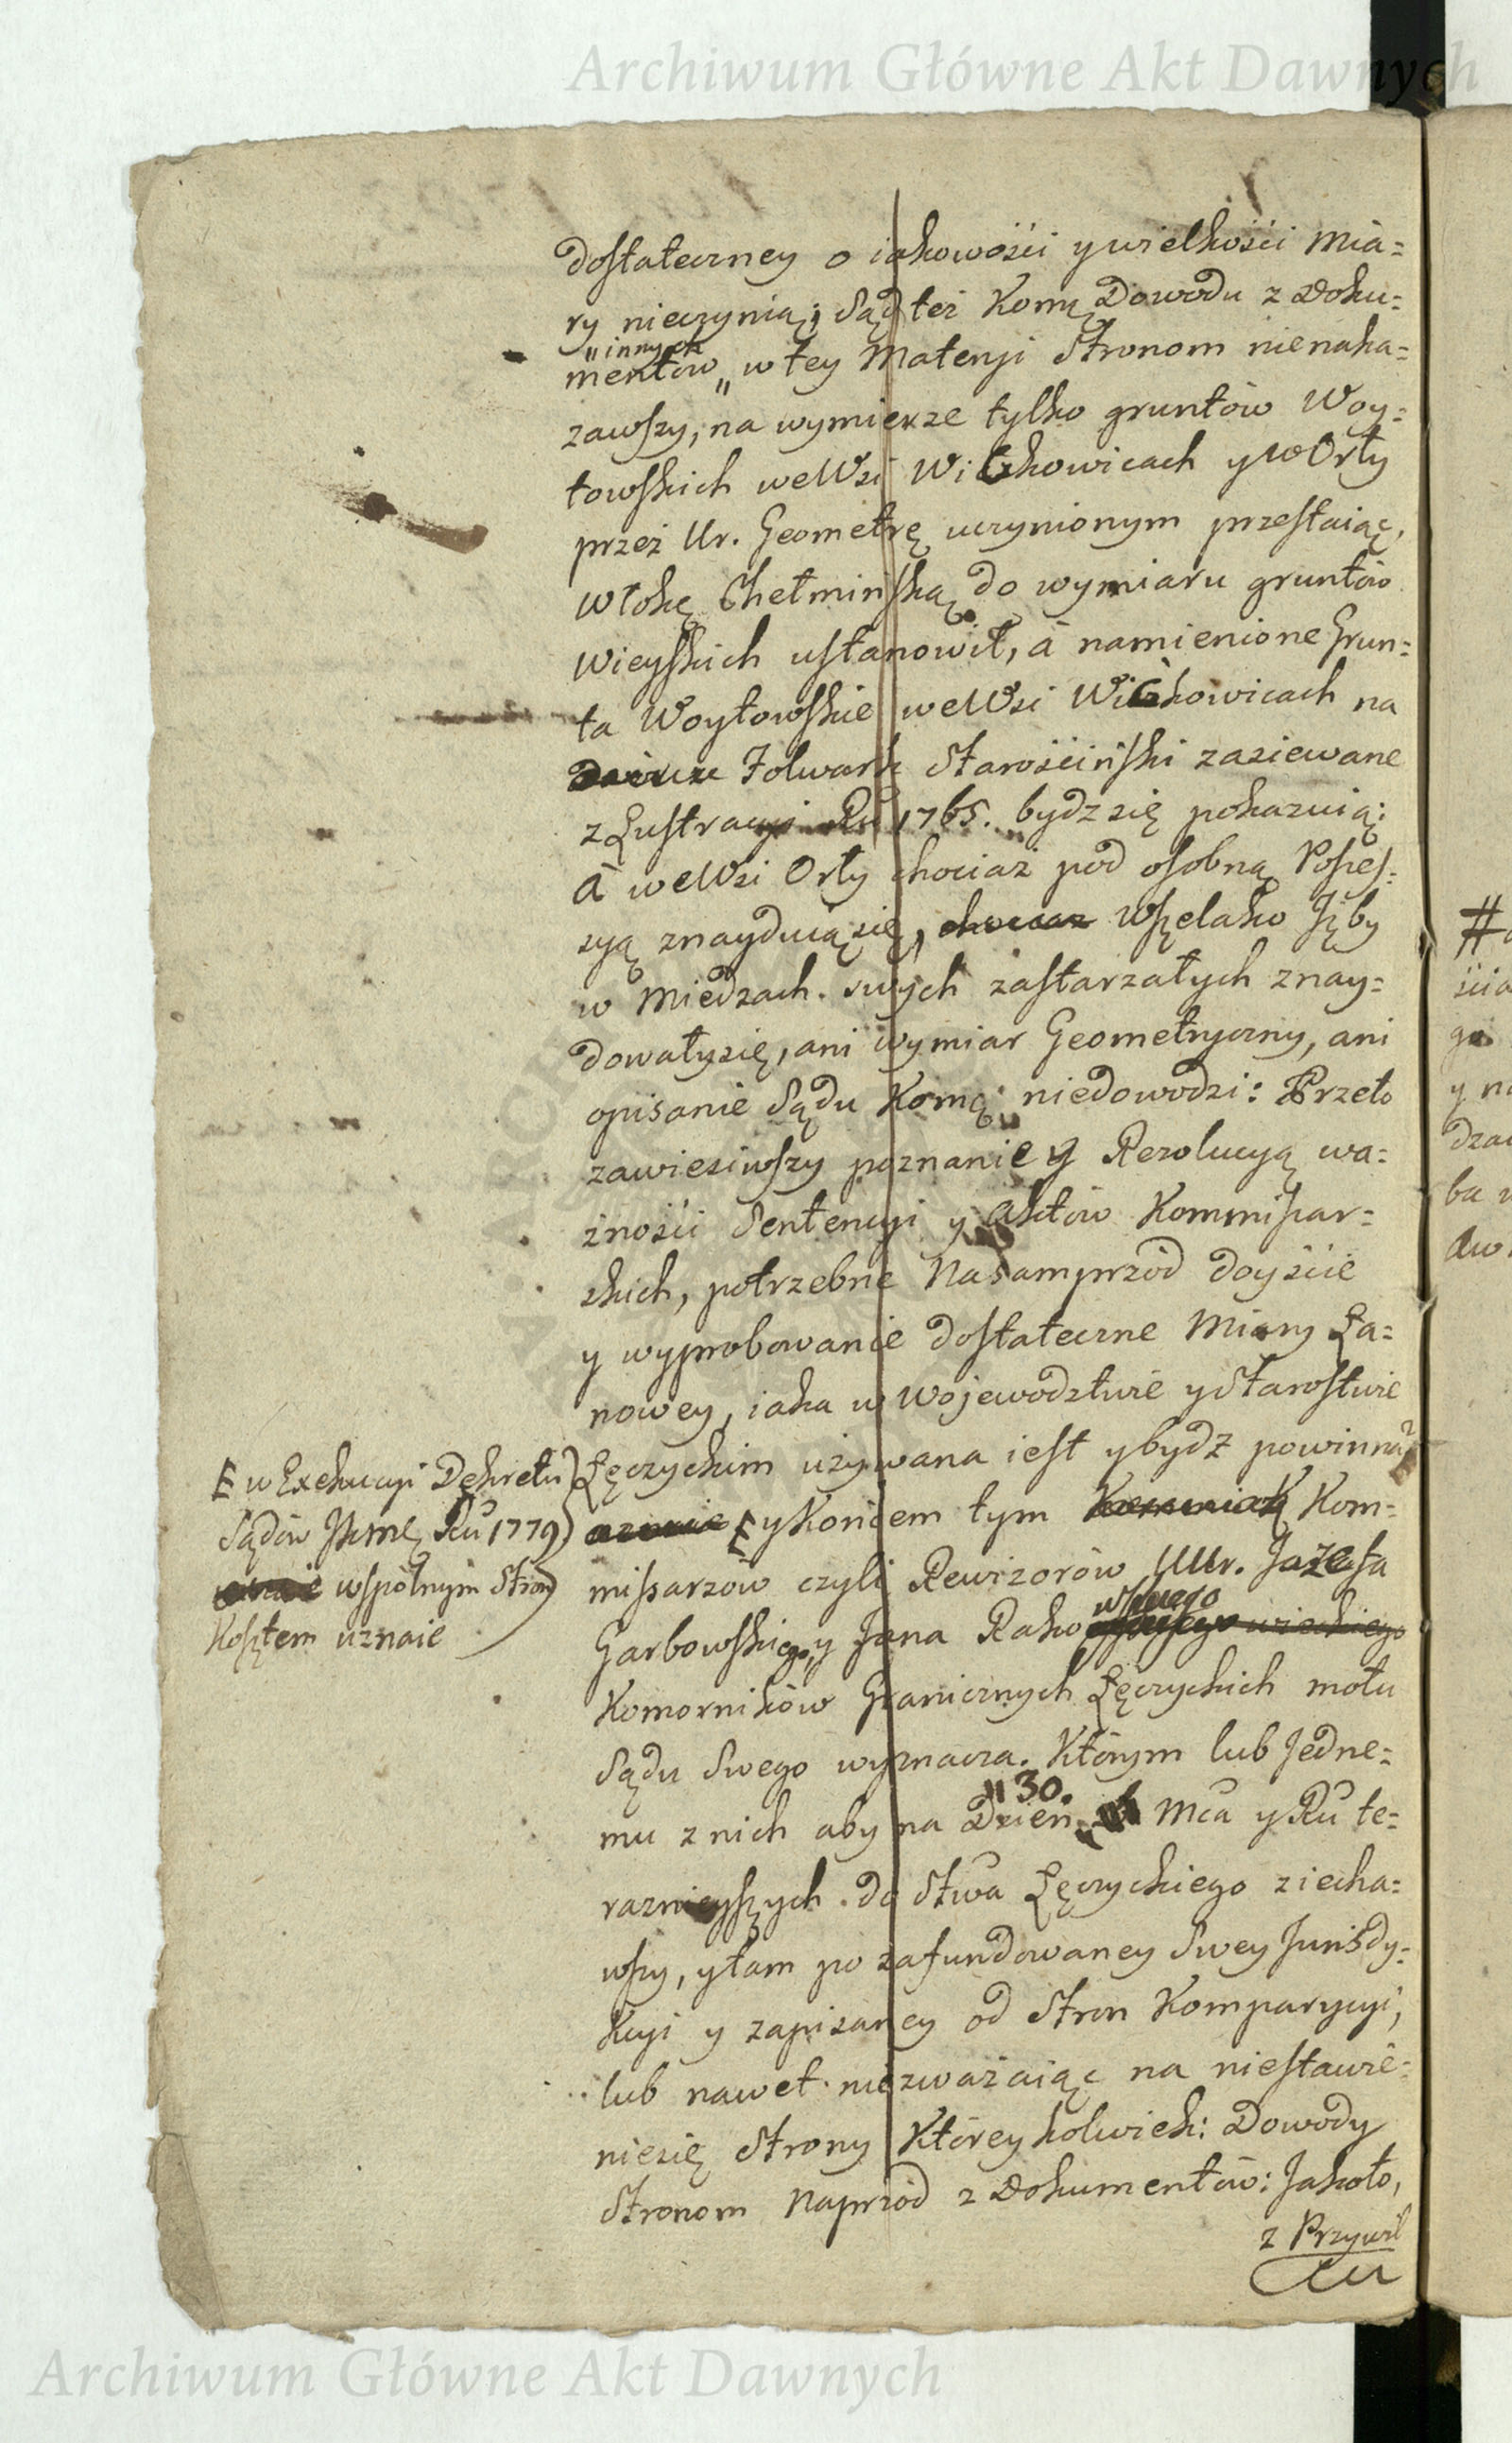 Archiwum Główne Akt Dawnych
dostateczney o iakowości y wielkości Mia=
ry nieczynią; Sąd też Komq Dowodu z Doku=
„innych
mentów „ w tey Materyi Stronom nienaka=
zawszy, na wymierze tylko gruntów Woy=
towskich we Wsi Witkowicach y w Orły
przez Ur. Geometrę uczynionym przestaiąc,
Włokę Chełmińską do wymiaru gruntów
Wieyskich ustanowił, à namienione Grun=
ta Woytowskie we Wsi Witkowicach na
Folwark Starościński zasiewane
z Lustracyi Ru 1765. bydz się pokazuią:
à we Wsi Orły chociaz pod osobną Posses=
syą znayduią się, chociaz wszelako Iżby
w Miedzach swych zastarzałych znay=
dowały się, ani wymiar Geometryczny, ani
opisanie Sądu Komq: niedowodzi: Przeto
zawiesiwszy poznanie y Rezolucyą wa=
żności Sentencyi y Aktów Kommissar=
skich, potrzebne Nasamprzód doyście
y wyprobowanie dostateczne Miary Ła=
nowey, iaka w Wojewodztwie y Starostwie
Łęczyckim używana iest y bydz powinna
E w Exekucyi Dekretu
Sądów JKmę Ru 1779
wspólnym Stron
Kosztem uznaie
E y Końcem tym Kom=
missarzów czyli Rewizorów UUr. Jozefa
wskiego
Garbowskiego, y Jana Rako
Komorników Granicznych Łęczyckich motu
Sądu Swego wyznacza. Którym lub Jedne=
„30.
mu z nich aby na Dzień Mca y Ru te=
raznieyszych do Stwa Łęczyckiego ziecha=
wszy, y tam po zafundowaney Swey Jurisdy=
kcyi y zapisaney od Stron Komparycyi,
lub nawet niezważaiąc na niestawie=
niesię Strony Którey kolwiek: Dowody
Stronom Naprzód z Dokumentów: Jakoto,
z Przywil
#
Archiwum Główne Akt Dawnych